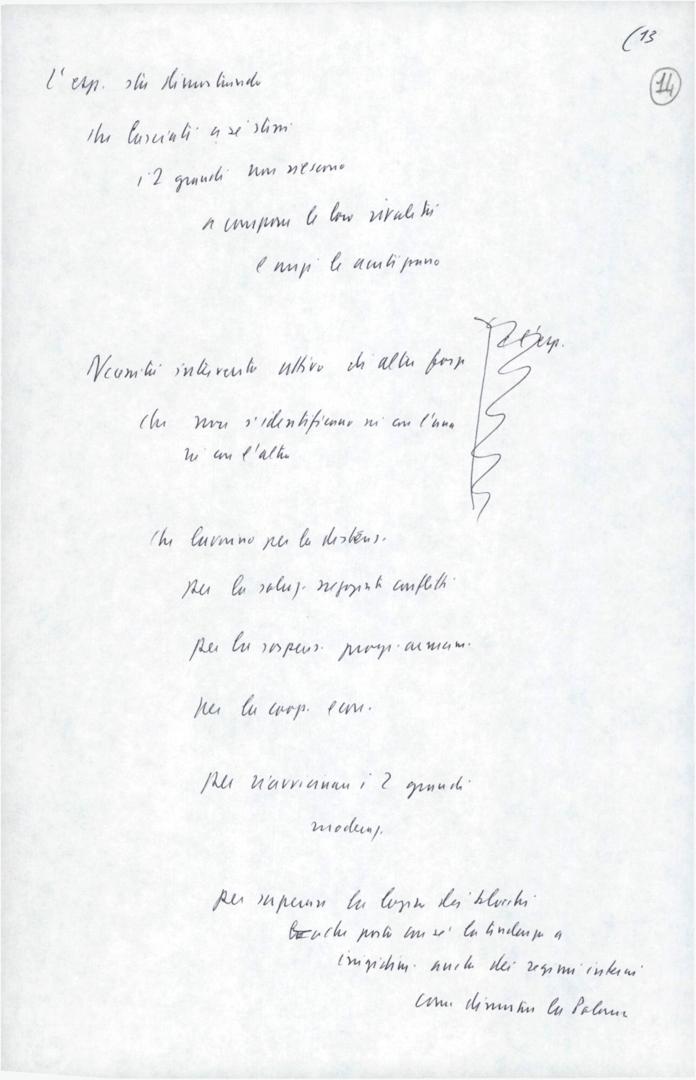 (13
14
L'esp. sta dimostrando
che lasciati a sé stessi
i 2 grandi non riescono
a comporre le loro rivalità
e anzi le acutizzano
dell'esp.
Necessità intervento attivo di altre forze
che non s'identificano né con l'una
né con l'altra
che lavorano per la distens.
per la soluz. negoziata conflitti
per la sospens. progr. armam.
per la coop. econ.
per riavvicinare i 2 grandi
moderaz.
per superare la logica dei blocchi
che porta con sé la tendenza a
irrigidim. anche dei regimi interni
come dimostra la Polonia